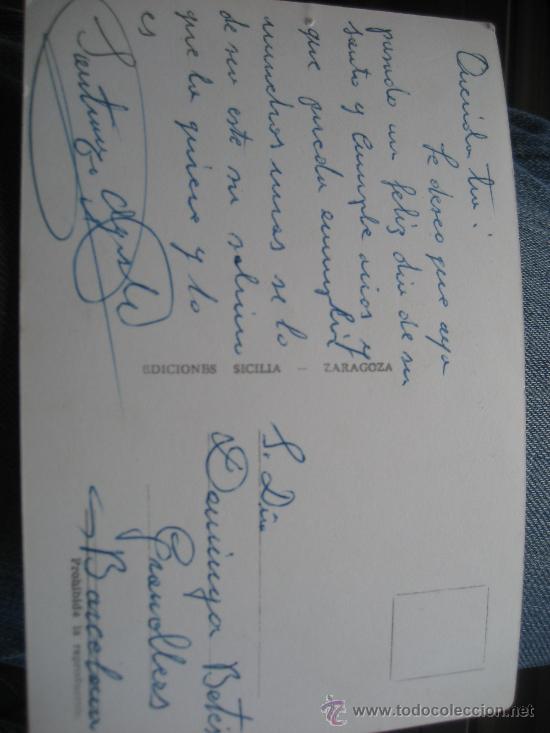 Querida tia:
te deseo que aya
pasado un feliz dia de su
santo y cumple años y
que pueda cumplir
muchos mas se lo
desea este su sobrino
que la quiere y lo
es
Santiago
EDICIONES SICILIA - ZARAGOZA
S. Dña
Dominga
Granollers
Barcelona
Prohibida la reproducción
todocoleccion
www.todocoleccion.net